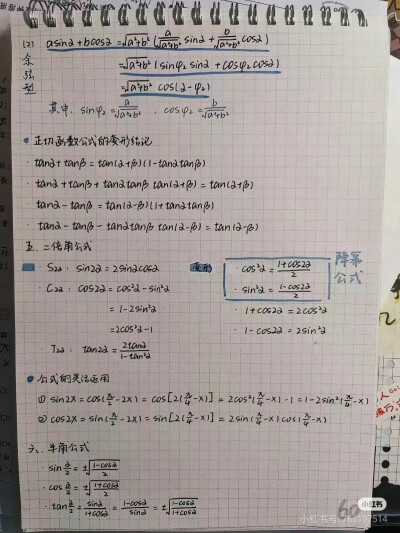 (2) asinα+bcosα=√(a²+b²)(a/√(a²+b²) sinα+b/√(a²+b²) cosα)
余弦型
=√(a²+b²)(sinφ₂sinα+cosφ₂cosα)
=√(a²+b²)cos(α-φ₂)
其中, sinφ₂=a/√(a²+b²), cosφ₂=b/√(a²+b²)
正切函数公式的变形结论
·tanα+tanβ=tan(α+β)(1-tanαtanβ)
·tanα+tanβ+tanαtanβtan(α+β)=tan(α+β)
·tanα-tanβ=tan(α-β)(1+tanαtanβ)
·tanα-tanβ-tanαtanβtan(α-β)=tan(α-β)
五. 二倍角公式
S₂α: sin2α=2sinαcosα
C₂α: cos2α=cos²α-sin²α
=1-2sin²α
=2cos²α-1
T₂α: tan2α=2tanα/(1-tan²α)
变形
·cos²α=(1+cos2α)/2
·sin²α=(1-cos2α)/2
降幂公式
·1+cos2α=2cos²α
·1-cos2α=2sin²α
公式的灵活运用
① sin2x=cos(π/2-2x)=cos[2(π/4-x)]=2cos²(π/4-x)-1=1-2sin²(π/4-x)
② cos2x=sin(π/2-2x)=sin[2(π/4-x)]=2sin(π/4-x)cos(π/4-x)
六. 半角公式
·sin α/2=±√((1-cosα)/2)
·cos α/2=±√((1+cosα)/2)
·tan α/2=sinα/(1+cosα)=(1-cosα)/sinα=±√((1-cosα)/(1+cosα))
60
小红书